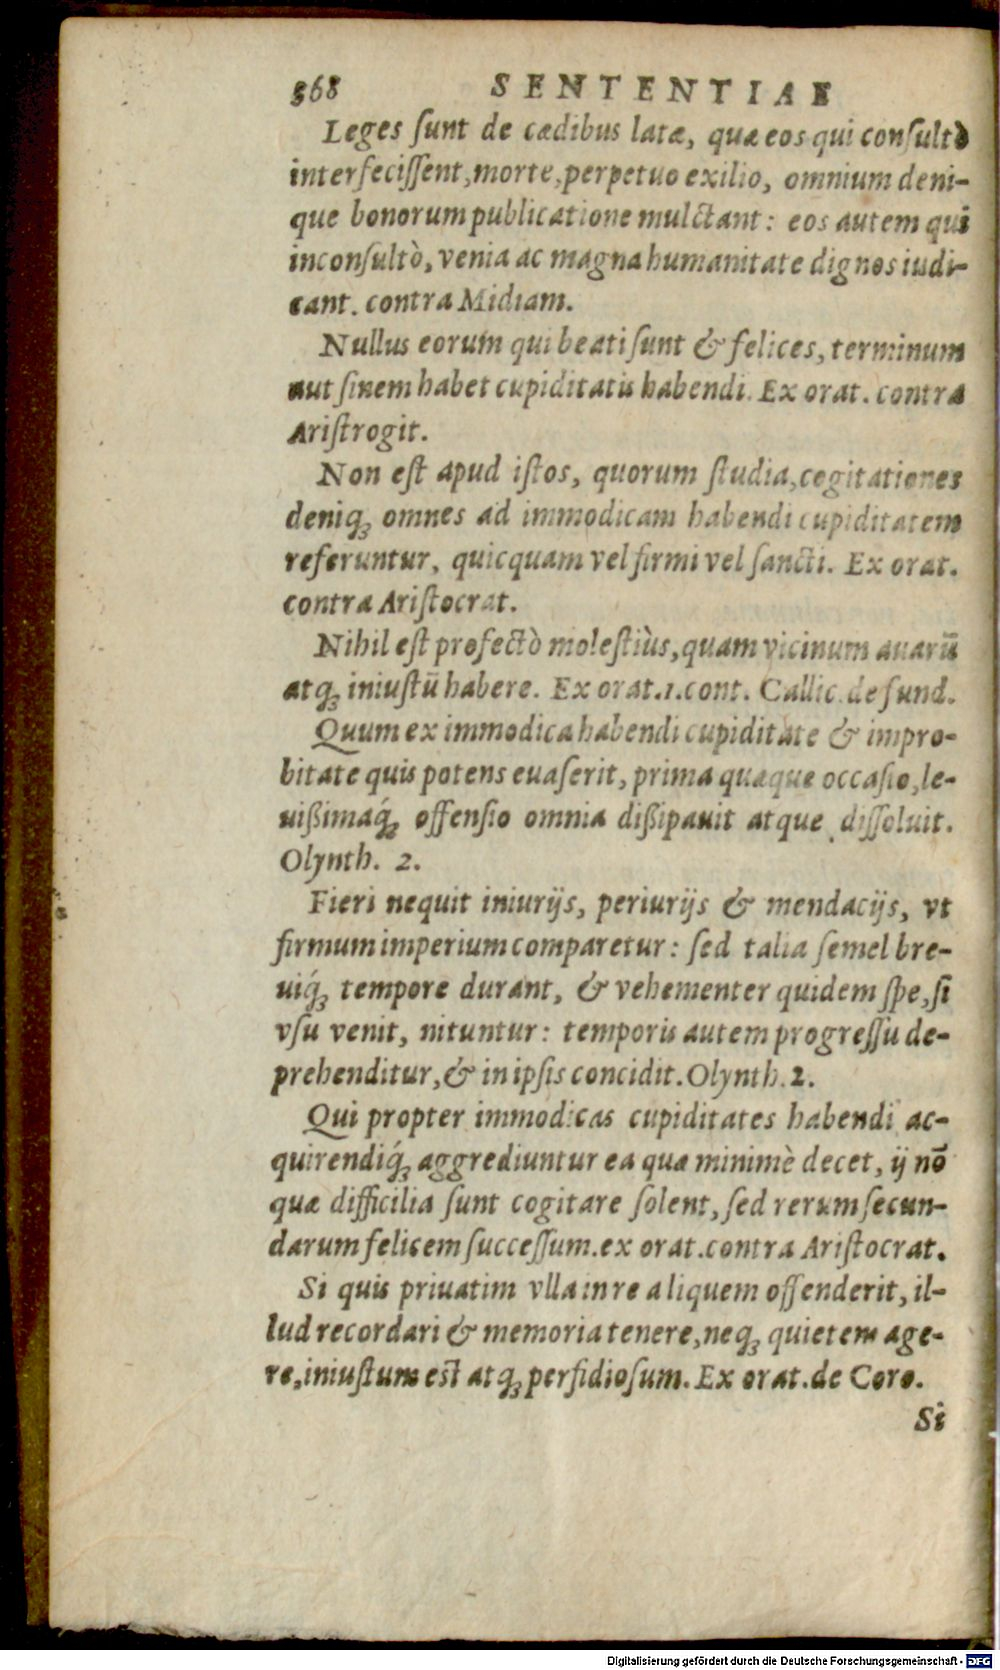 368 SENTENTIAE
Leges ſunt de cædibus latæ, quæ eos qui conſultò
interfeciſſent, morte, perpetuo exilio, omnium deni-
que bonorum publicatione mulctant: eos autem qui
inconſultò, venia ac magna humanitate dignos iudi-
cant. contra Midiam.
Nullus eorum qui beati ſunt & felices, terminum
aut finem habet cupiditatis habendi. Ex orat. contra
Ariſtrogit.
Non eſt apud iſtos, quorum ſtudia, cogitationes
deniqꝫ omnes ad immodicam habendi cupiditatem
referuntur, quicquam vel firmi vel ſancti. Ex orat.
contra Ariſtocrat.
Nihil eſt profectò moleſtiùs, quam vicinum auarū
atqꝫ iniuſtū habere. Ex orat. 1. cont. Callic. de fund.
Quum ex immodica habendi cupiditate & impro-
bitate quis potens evaſerit, prima quæque occaſio, le-
uißimaq́ꝫ offenſio omnia dißipauit atque diſſoluit.
Olynth. 2.
Fieri nequit iniurijs, periurijs & mendacijs, vt
firmum imperium comparetur: ſed talia ſemel bre-
uiq́ꝫ tempore durant, & vehementer quidem ſpe, ſi
vſu venit, nituntur: temporis autem progreſſu de-
prehenditur, & in ipſis concidit. Olynth. 2.
Qui propter immodicas cupiditates habendi ac-
quirendiq́ꝫ aggrediuntur ea quæ minimè decet, ij nō
quæ difficilia ſunt cogitare ſolent, ſed rerum ſecun-
darum felicem ſucceſſum. ex orat. contra Ariſtocrat.
Si quis priuatim vlla in re aliquem offenderit, il-
lud recordari & memoria tenere, neqꝫ quietem age-
re, iniuſtum eſt atqꝫ perfidioſum. Ex orat. de Coro.
Si
Digitalisierung gefördert durch die Deutsche Forschungsgemeinschaft - DFG